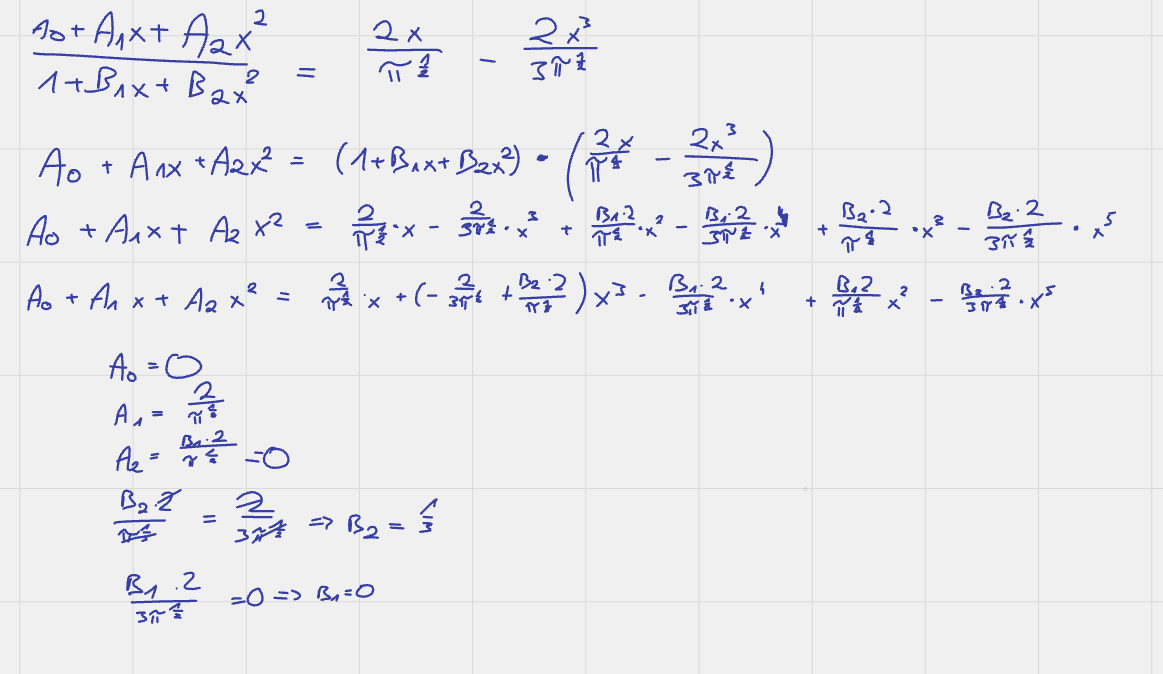 (A₀ + A₁x + A₂x²)/(1 + B₁x + B₂x²) = 2x/π^(1/2) − 2x³/(3π^(1/2))
A₀ + A₁x + A₂x² = (1 + B₁x + B₂x²) · (2x/π^(1/2) − 2x³/(3π^(1/2)))
A₀ + A₁x + A₂x² = 2/π^(1/2) · x − 2/(3π^(1/2)) · x³ + B₁·2/π^(1/2) · x² − B₁·2/(3π^(1/2)) · x⁴ + B₂·2/π^(1/2) · x³ − B₂·2/(3π^(1/2)) · x⁵
A₀ + A₁x + A₂x² = 2/π^(1/2) · x + (−2/(3π^(1/2)) + B₂·2/π^(1/2)) x³ − B₁·2/(3π^(1/2)) · x⁴ + B₁2/π^(1/2) x² − B₂·2/(3π^(1/2)) · x⁵
A₀ = 0
A₁ = 2/π^(1/2)
A₂ = B₁·2/π^(1/2) = 0
B₂·2/π^(1/2) = 2/(3π^(1/2)) => B₂ = 1/3
B₁·2/(3π^(1/2)) = 0 => B₁ = 0